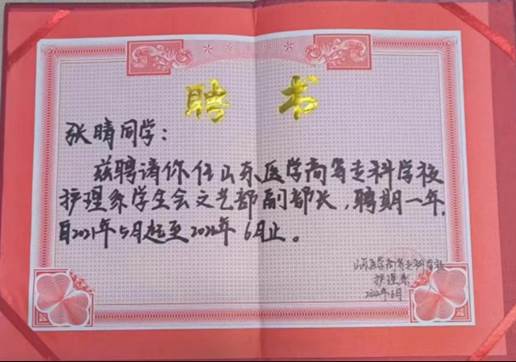 聘书
张晴同学：
兹聘请你任山东医学高等专科学校
护理系学生会文艺部副部长，聘期一年，
自2021年5月起至2022年6月止。
山东医学高等专科学校
护理系
2022年6月